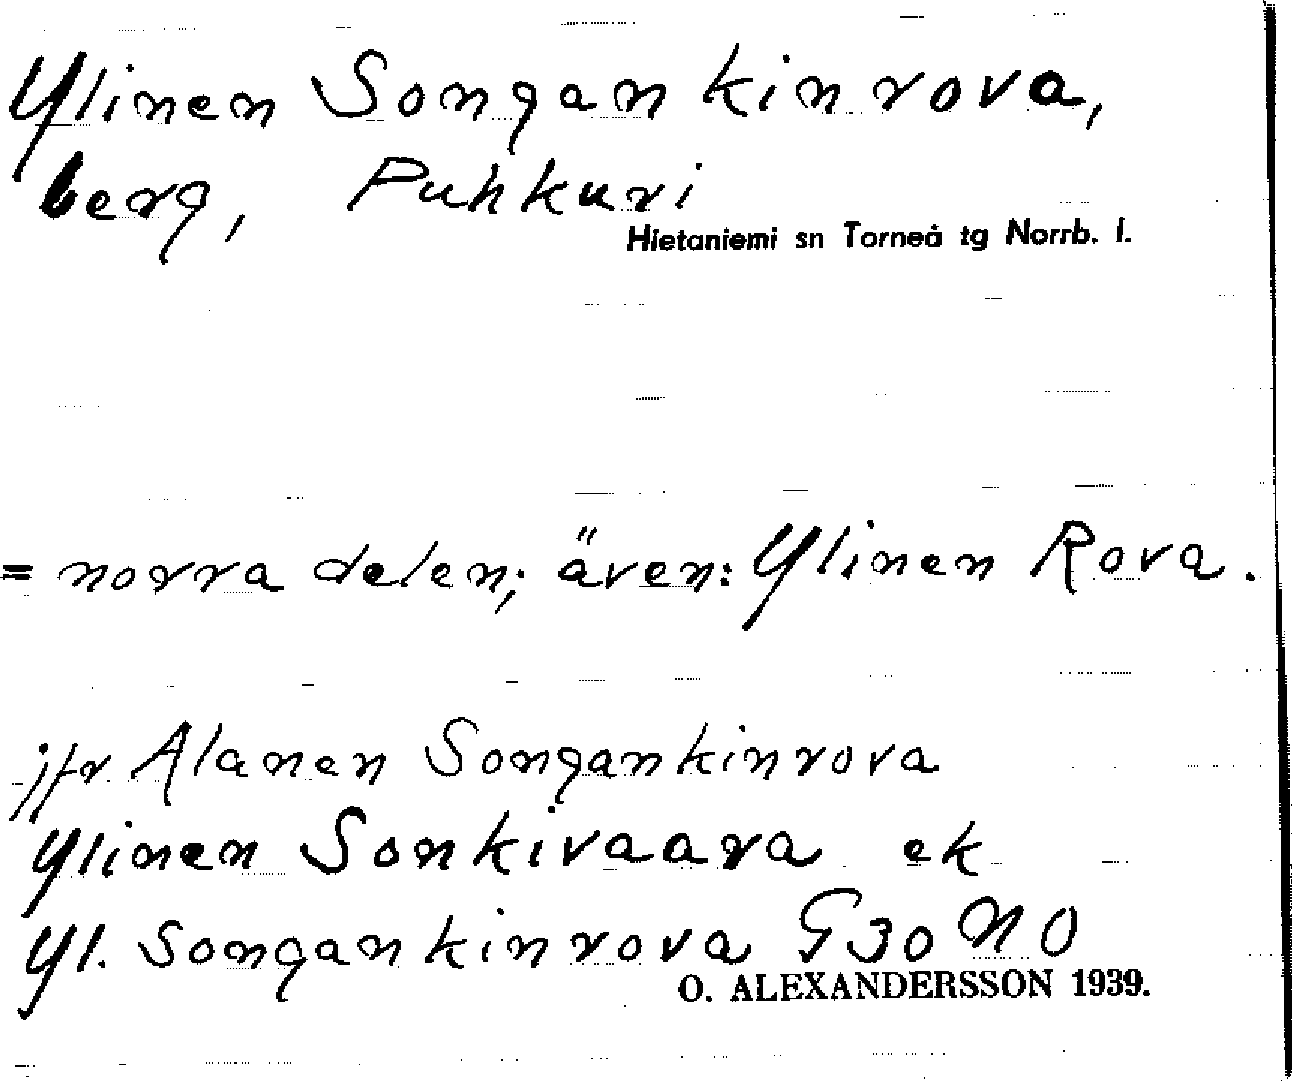 Ylinen Songankinrova,
berg, Puhkuri
Hietaniemi sn Torneå tg Norrb. l.
= norra delen; även: Ylinen Rova.
jfr Alanen Songankinrova
Ylinen Sonkivaara ek
Yl. Songankinrova G30 NO
O. ALEXANDERSSON 1939.